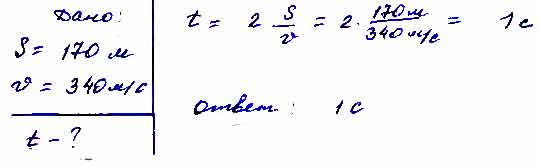 Дано:
S = 170 м
v = 340 м/с
t - ?
t = 2 · S/v = 2 · 170м/340м/с = 1с
Ответ: 1с